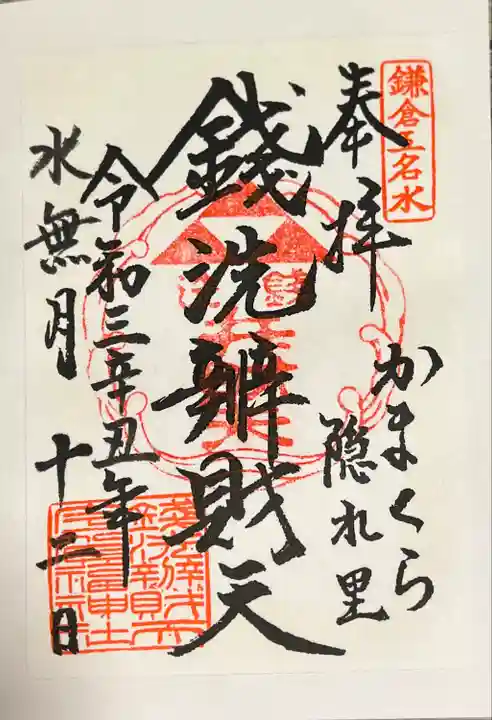 鎌倉五名水
奉拝
かまくら
隠れ里
銭洗辨財天
令和三辛丑年
水無月十二日